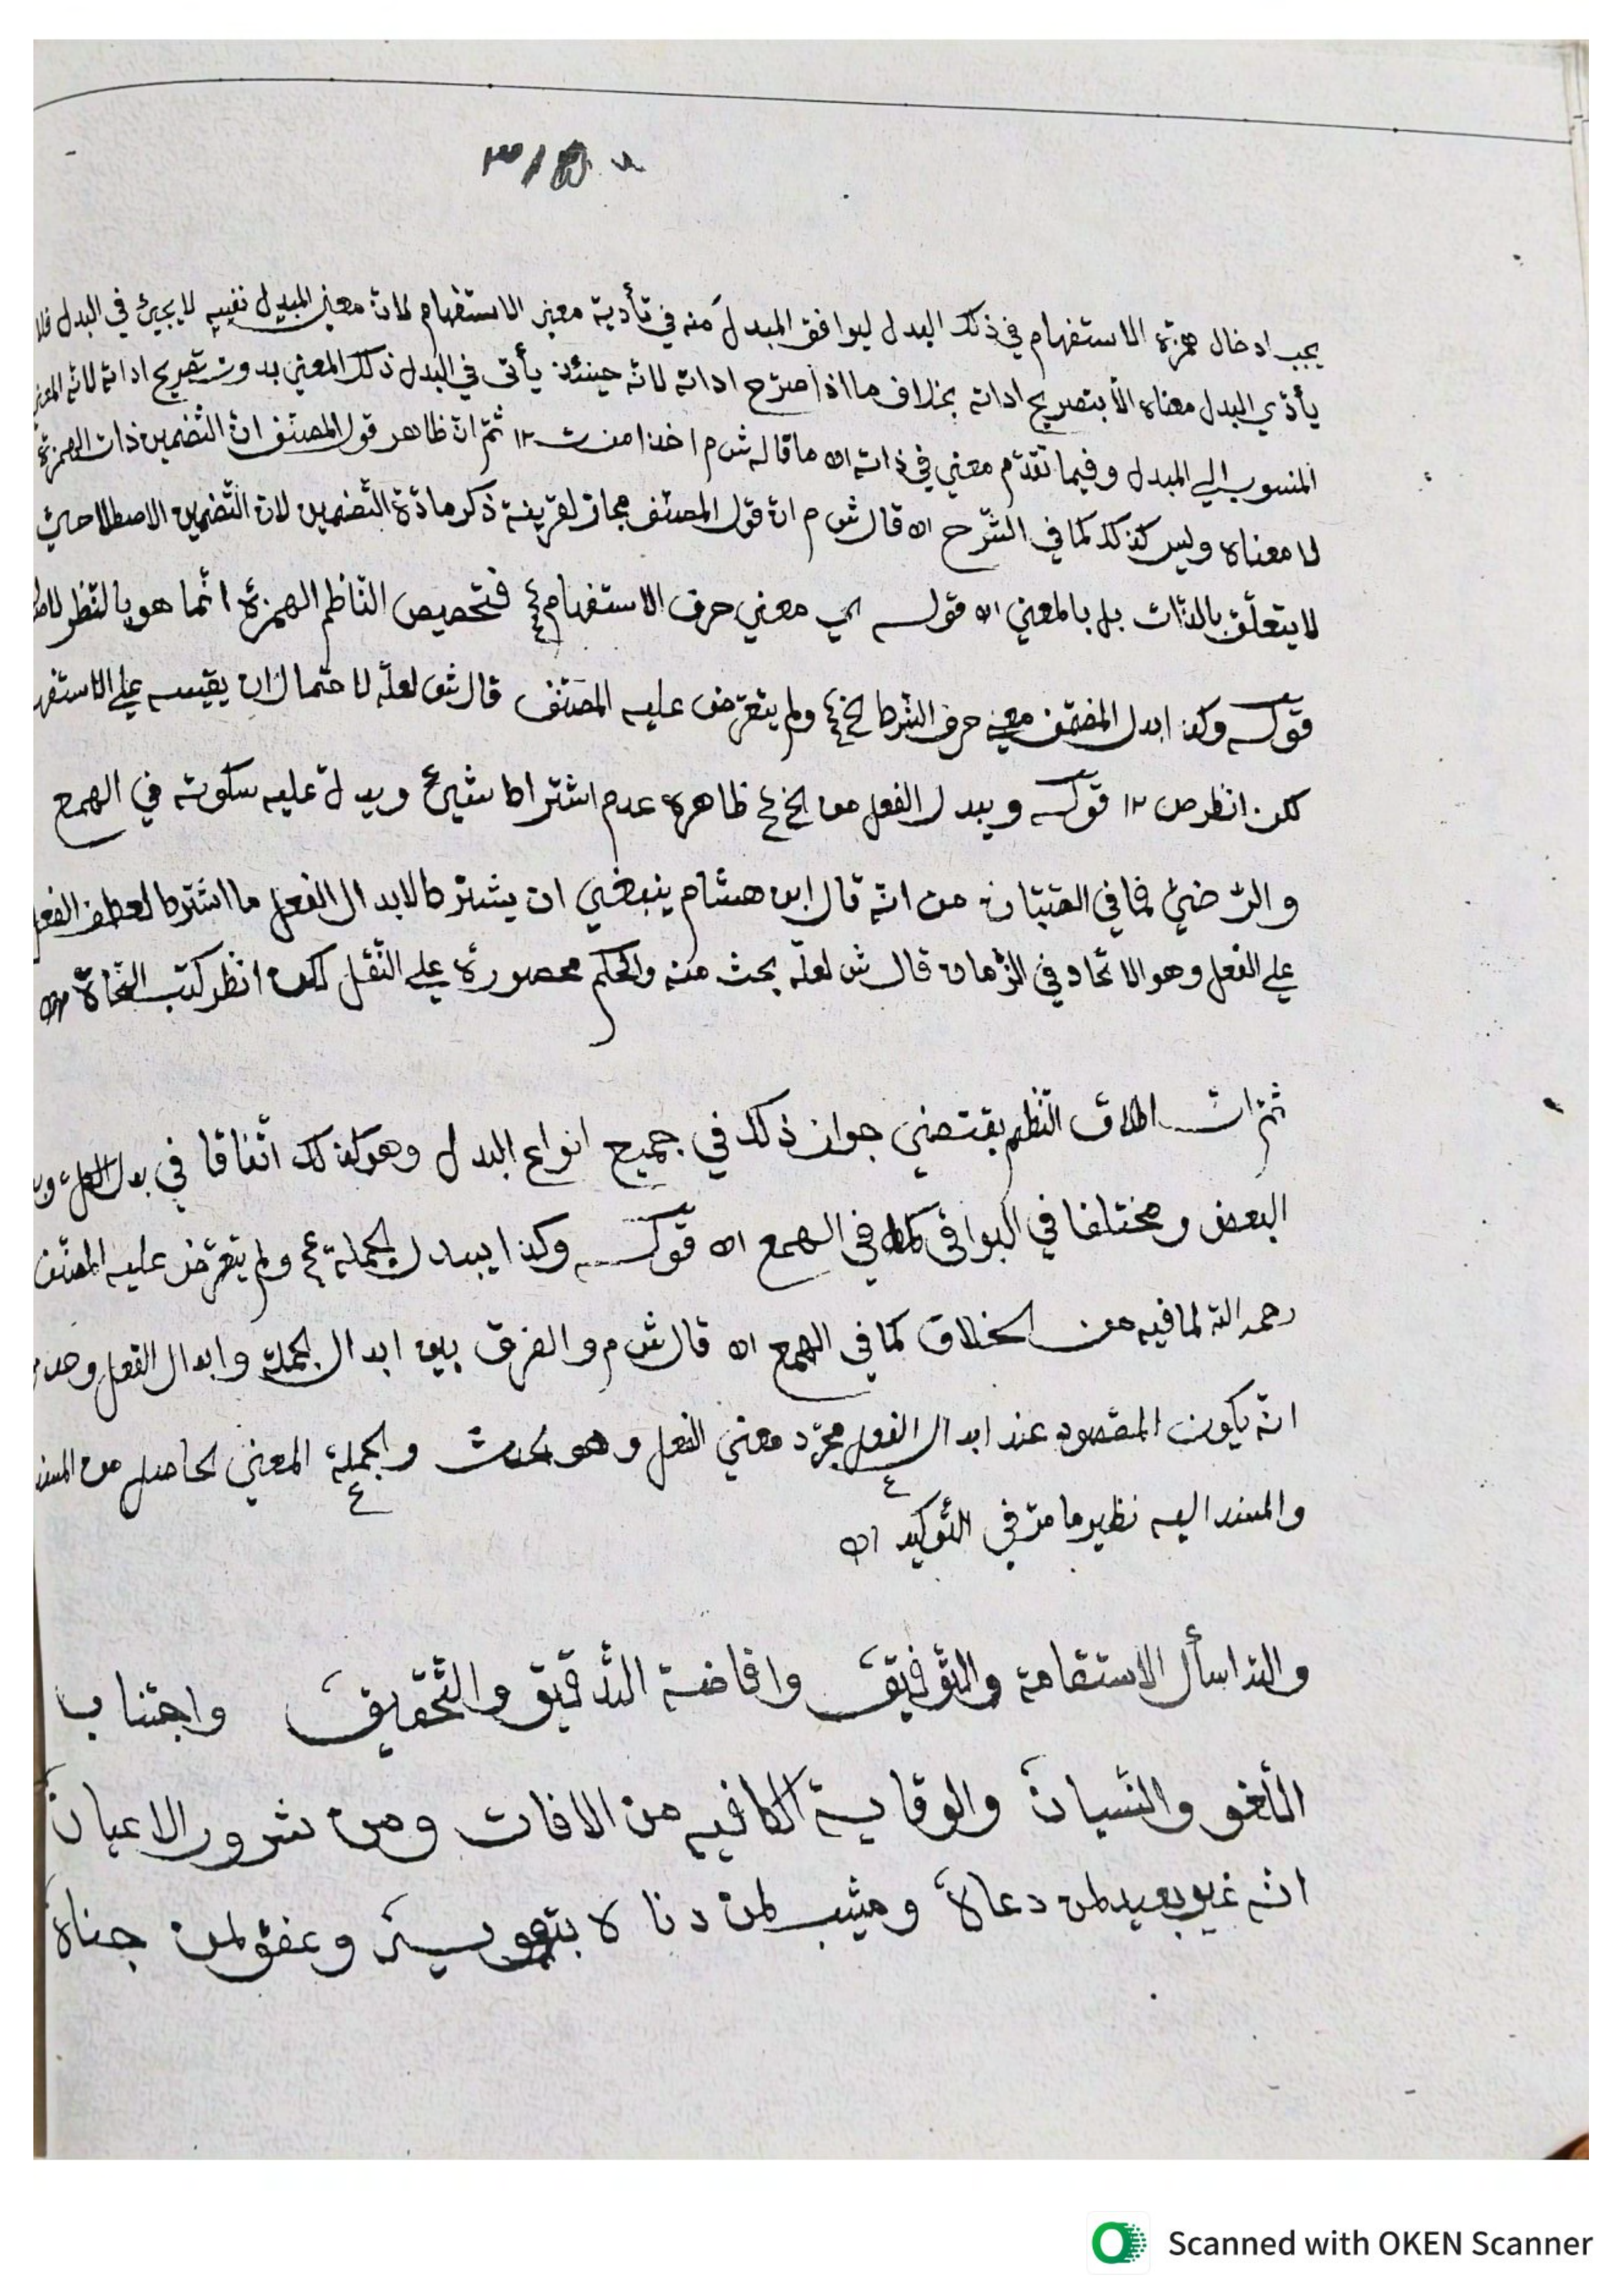 يجب ادخال همزة الاستفهام في ذلك البدل ليوافق المبدل منه في تأدية معنى الاستفهام لانّ معنى المبدل نفسه لا يجيئ في البدل فلا
يأدّي البدل معناه الّا بتصريح اداته بخلاف ما اذا صرّح اداته لانّه حينئذ يأتى في البدل ذلك المعنى بدون تصريح اداته لانّه المعنى
المنسوب الي المبدل وفيما تقدّم معني في ذاته اه ما قاله ش م اخذا من ثمّ انّ ظاهر قول المصنّف انّ التّضمين ذات الهمزة
لا معناه وليس كذلك كما في الشّرح اه قال ش م انّ قول المصنّف مجاز لقرينة ذكر مادّة التّضمين لانّ التّضمين الاصطلاحيّ
لا يتعلّق بالذّات بل بالمعني اه قوله اي معني حرف الاستفهام فتحصيص النّاظم الهمزة انّما هو بالنّظر
قوله وكذا بدل المضمّن معني حرف الشرط الخ ولم يتعرّض عليه المصنّف قال ش لعلّه لاحتمال ان يقيسه علي الاستفهـ
لكن انظر ص ١٢ قوله ويبدل الفعل من الخ ظاهره عدم اشتراط شيئ ويدلّ عليه سكوته في الهمع
والرّضيّ فما في الصّبّان من انّه قال ابن هشام ينبغي ان يشترط لابدال الفعل ما اشترط لعطف الفعل
علي الفعل وهو الاتّحاد في الزّمان قال ش لعلّه بحث منه والحكم محصورة علي النّقل لكن انظر كتب النّحاة
ثمّ انّ اطلاق النّظم يقتضي جواز ذلك في جميع انواع البدل وهو كذلك اتّفاقا في بدل الكلّ
البعض ومختلفا في البواقي كما في الهمع اه قوله وكذا يبدل الجملة ولم يتعرّض عليه المصنّف
رحمه الله لما فيه من الخلاف كما في الهمع اه قال ش م والفرق بين ابدال الجملة وابدال الفعل وحده
انّه يكون المقصود عند ابدال الفعل مجرّد معني الفعل وهو الحدث والجملة المعني الحاصل من المسند
والمسند اليه نظير ما مرّ في التّوكيد اه
والله اسأل الاستقامة والتّوفيق وافاضة التّدقيق والتّحقيق واجتناب
اللّغو والنّسيان والوقاية الكافيه من الافات ومن شرور الاعيان
انّه غير بعيد لمن دعاه ومثيب لمن دنا لا وعفوّ لمن جناه
Scanned with OKEN Scanner